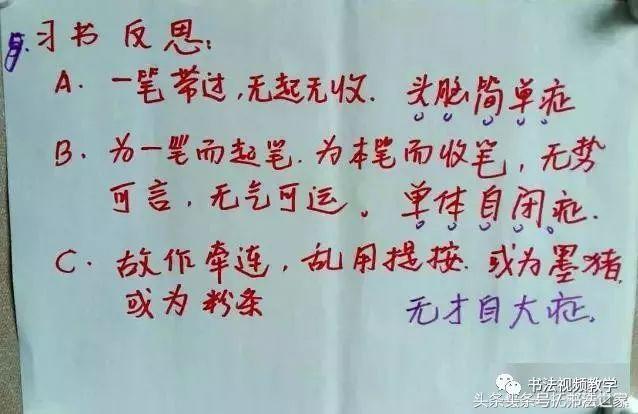 习书反思:
A. 一笔带过,无起无收. 头脑简单症
B. 为一笔而起笔. 为本笔而收笔, 无势
可言, 无气可运。单体自闭症.
C. 故作牵连, 乱用提按. 或为墨猪,
或为粉条 无才自大症.
书法视频教学